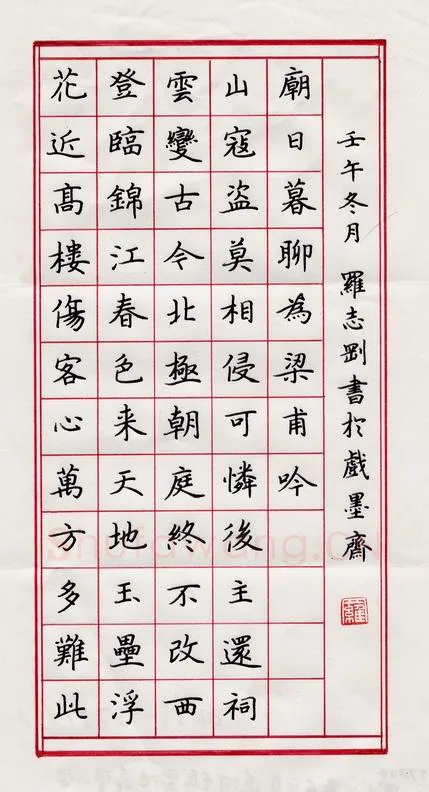 花近髙樓傷客心萬方多難此
登臨錦江春色来天地玉壘浮
雲變古今北極朝庭終不改西
山寇盜莫相侵可憐後主還祠
廟日暮聊為梁甫吟
壬午冬月 羅志剛書於戲墨齋
羅
Shufawang.Cn